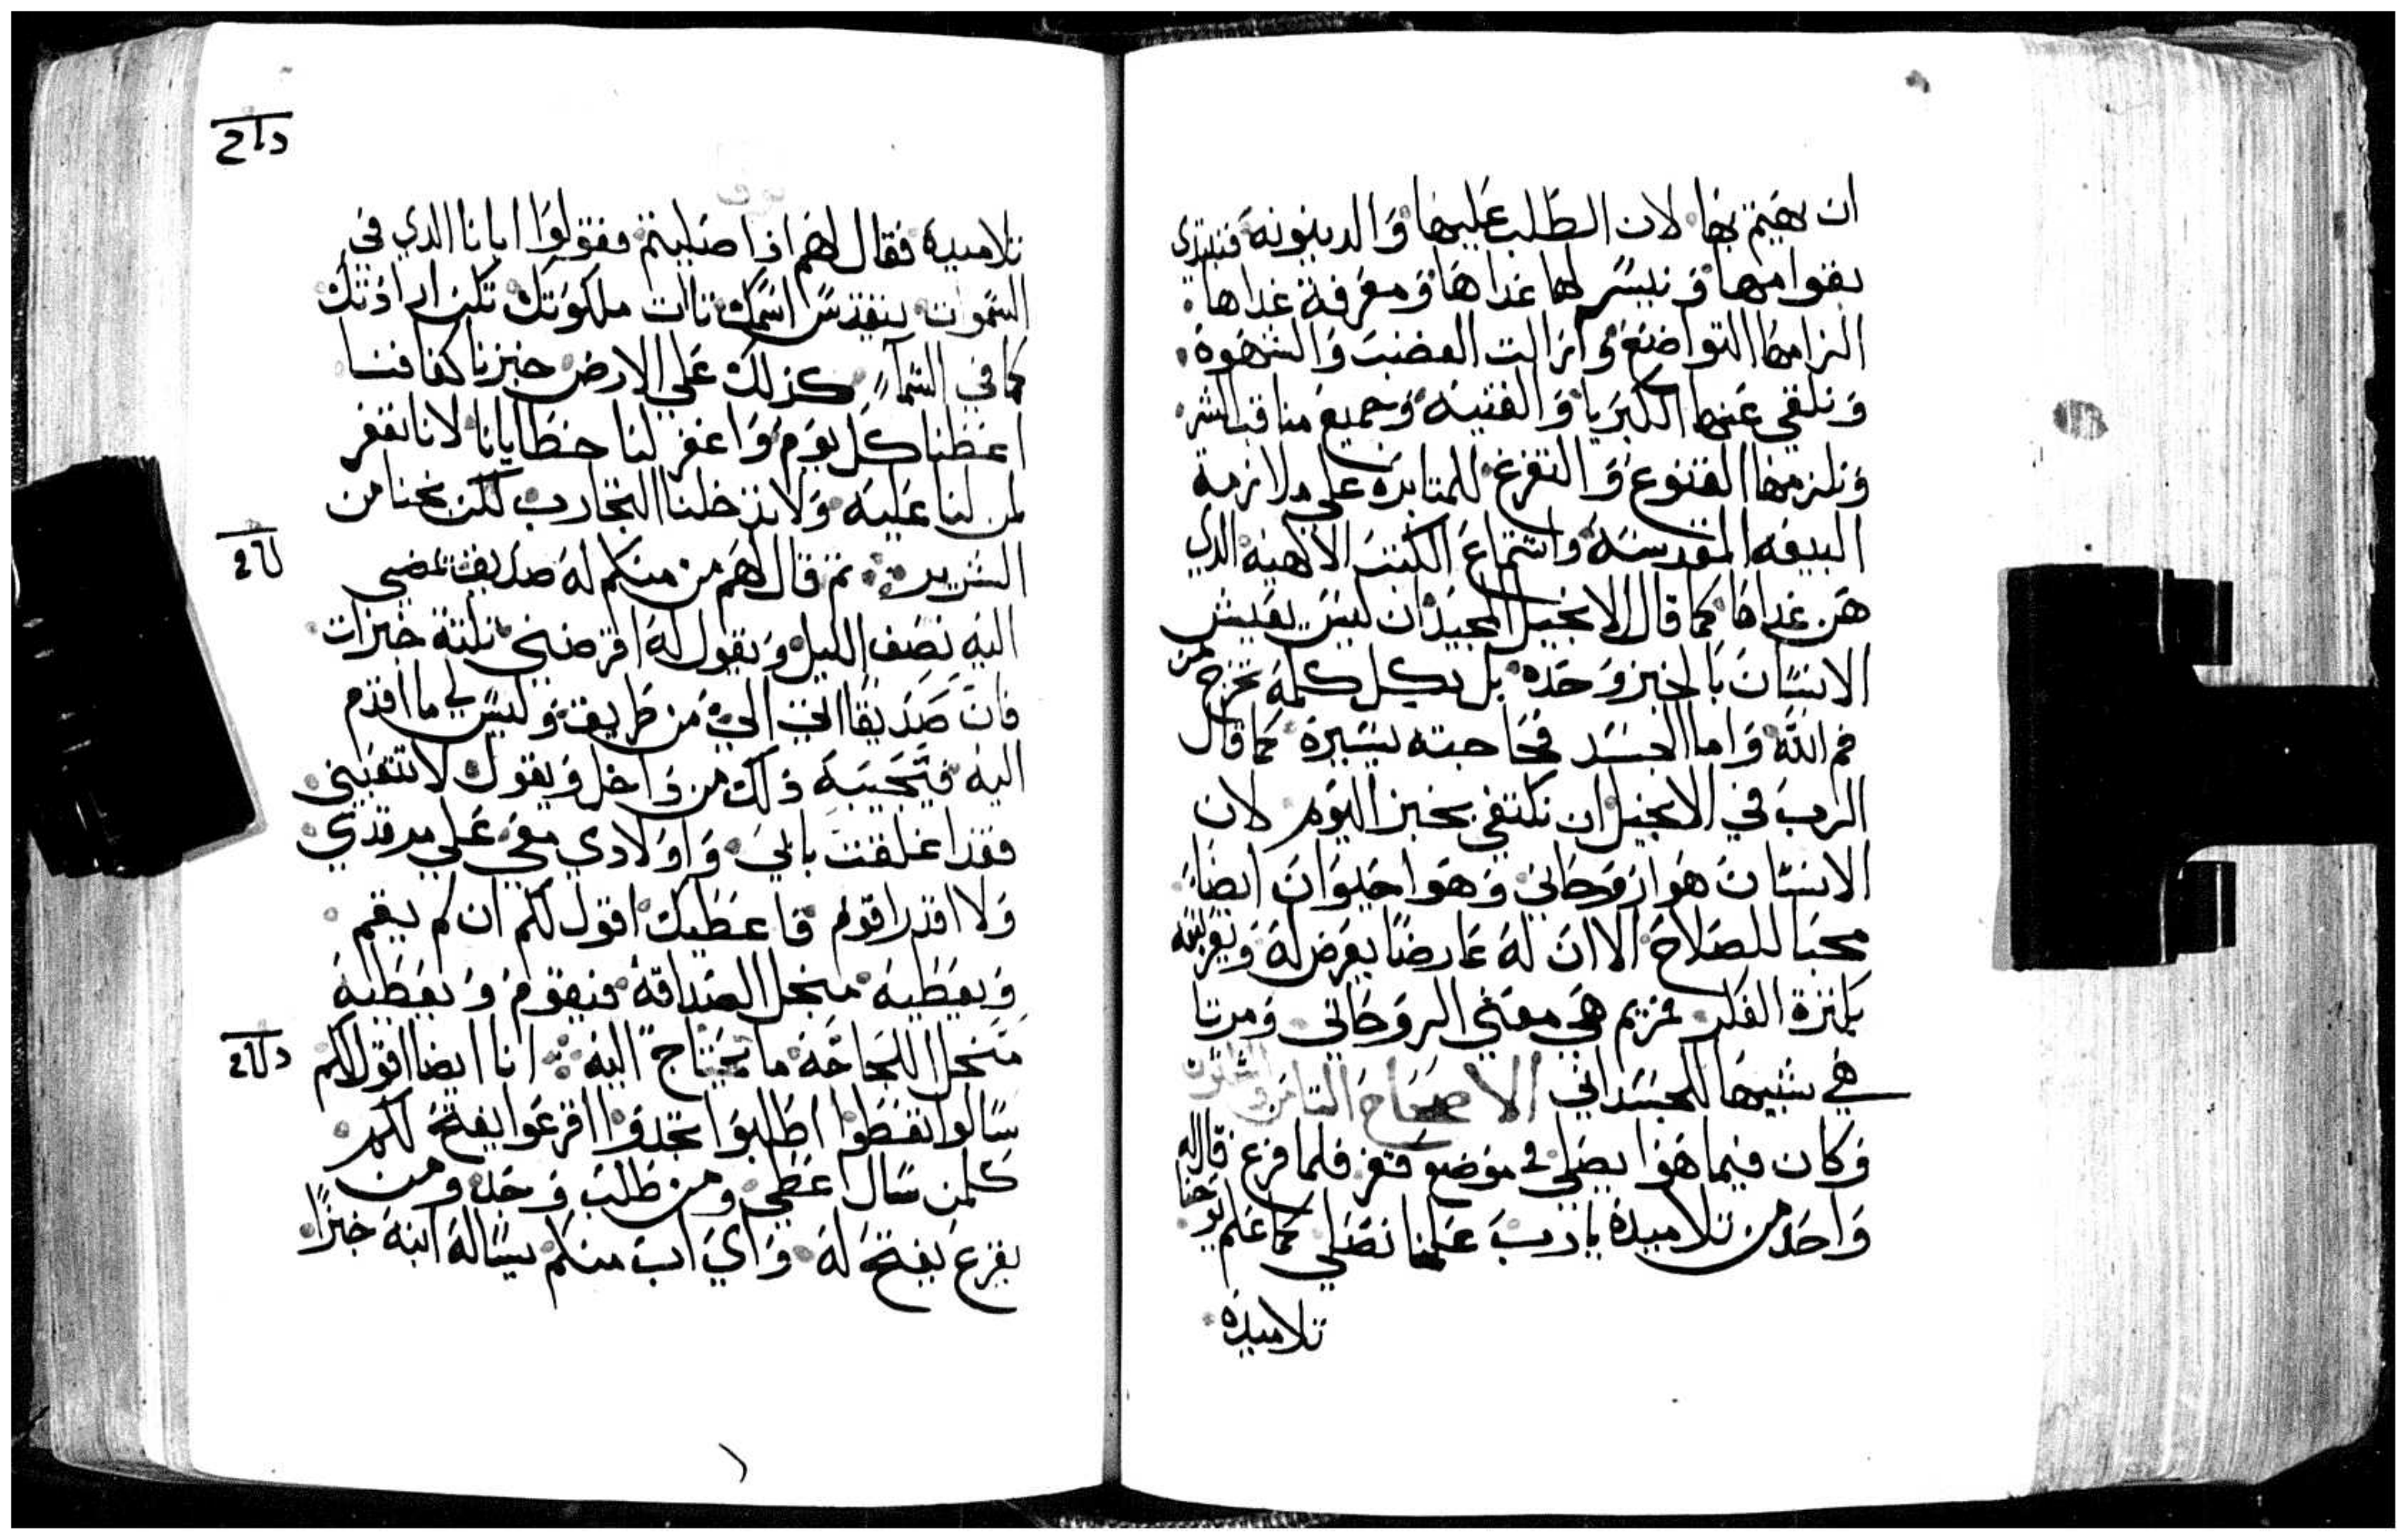 ان يهتم بها لان الطلب عليها والدينونه فنبتدي
بقوامها ونيسر لها غداها ومعرفة غداها
الزامها التواضع وازالت الغضب والشهوة
ونلقي عنها الكبريا والفتيه وجميع مناقب الشر
ونلزمها القنوع والتفرغ للمتابره على ملازمة
البيعه المقدسه واستماع الكتب الالهيه الدي
هن غداها كما قال الانجيل المجيد ان ليس يعيش
الانسان بالخبز وحده بل بكل كلمة تخرج من
فم الله واما الجسد فحاجته يسيرة كما قال
الرب في الانجيل ان نكتفي بخبز اليوم لان
الانسان هوا روحاني وهوا حيوان ايضا
محبا للصلاح الا ان له عارضا يعرض له
بكثرة الفكر فمريم هي معني الروحاني ومرتا
هي شبيها للجسداني الاصحاح الثامن والثلاثون
وكان فيما هوا يصلي في موضع قفر فلما فرغ قال له
واحد من تلاميده يا رب علمنا نصلي كما علم يوحنا
تلاميده
تلاميده فقال لهم اذا صليتم فقولوا ابانا الدي في
السموات يتقدس اسمك تات ملكوتك تكن ارادتك
كما في السما كذلك علي الارض خبزنا كفافنا
اعطنا كل يوم واغفر لنا خطايانا لانا نغفر
لمن لنا عليه ولا تدخلنا التجارب لكن نجنا من
الشرير ثم قال لهم من منكم له صديق يمضي
اليه نصف الليل ويقول له اقرضني ثلثة خبزات
فان صديقا اتي الي من طريق وليس لي ما اقدم
اليه فيجيبه ذلك من داخل ويقول لا تتعبني
فقد اغلقت بابي واولادي معي علي مرقدي
ولا اقدر اقوم فاعطيك اقول لكم ان لم يقم
ويعطيه منجل الصداقة فيقوم ويعطيه
منجل اللجاجه ما يحتاج اليه انا ايضا اقول لكم
سالوا تعطوا اطلبوا تجدوا اقرعوا يفتح لكم
كلمن سال اعطي ومن طلب وجد ومن
يقرع يفتح له واي اب منكم يساله ابنه خبزا